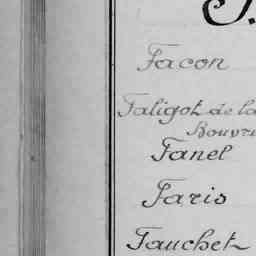 Facon
Faligot de la
Bouvri
Fanel
Faris
Fauchet